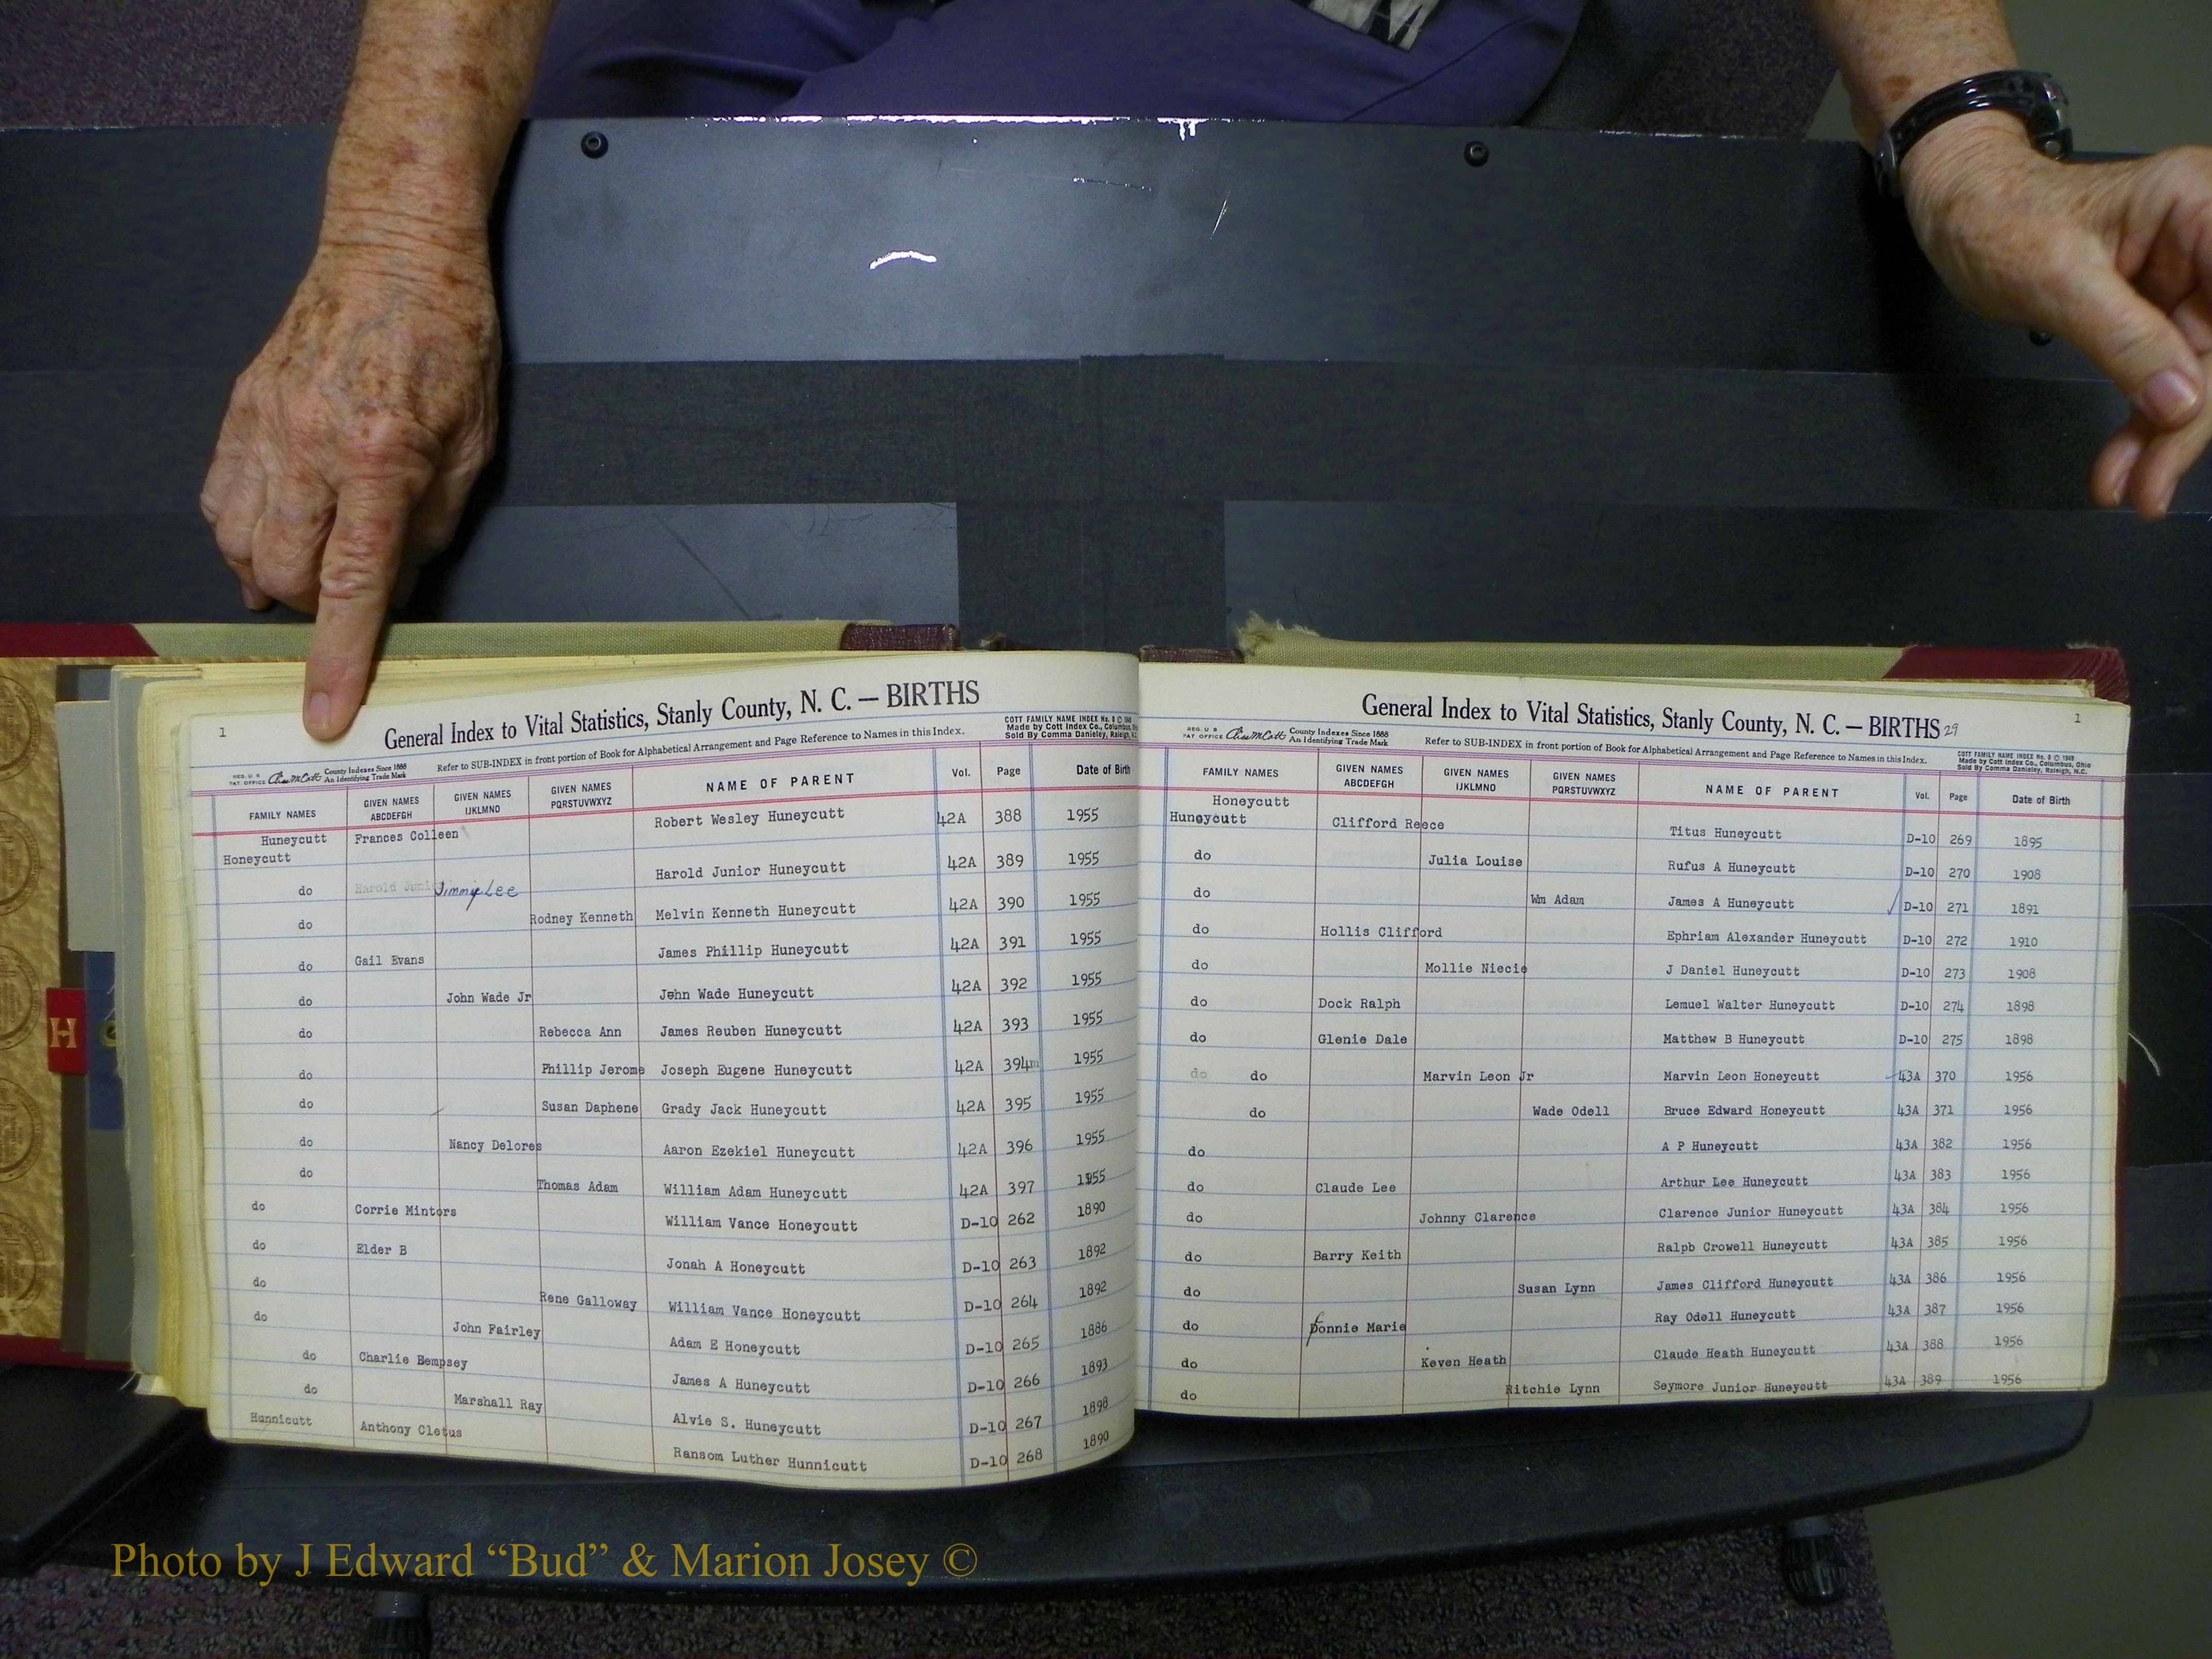 1
General Index to Vital Statistics, Stanly County, N. C. — BIRTHS
COTT FAMILY NAME INDEX No. 8 © 1949
Made by Cott Index Co., Columbus,
Sold By Comma Danieley, Raleigh, N.C.
REG. U S PAT OFFICE County Indexes Since 1888 An Identifying Trade Mark
Refer to SUB-INDEX in front portion of Book for Alphabetical Arrangement and Page Reference to Names in this Index.
FAMILY NAMES GIVEN NAMES ABCDEFGH GIVEN NAMES IJKLMNO GIVEN NAMES PQRSTUVWXYZ NAME OF PARENT Vol. Page Date of Birth
Huneycutt Frances Colleen Robert Wesley Huneycutt 42A 388 1955
Honeycutt
do Harold Juni Jimmy Lee Harold Junior Huneycutt 42A 389 1955
do Rodney Kenneth Melvin Kenneth Huneycutt 42A 390 1955
do Gail Evans James Phillip Huneycutt 42A 391 1955
do John Wade Jr John Wade Huneycutt 42A 392 1955
do Rebecca Ann James Reuben Huneycutt 42A 393 1955
do Phillip Jerome Joseph Eugene Huneycutt 42A 394m 1955
do Susan Daphene Grady Jack Huneycutt 42A 395 1955
do Nancy Delores Aaron Ezekiel Huneycutt 42A 396 1955
do Thomas Adam William Adam Huneycutt 42A 397 1955
do Corrie Mintors William Vance Honeycutt D-10 262 1890
do Elder B Jonah A Honeycutt D-10 263 1892
do Rene Galloway William Vance Honeycutt D-10 264 1892
do John Fairley Adam E Honeycutt D-10 265 1886
do Charlie Bempsey James A Huneycutt D-10 266 1893
do Marshall Ray Alvie S. Huneycutt D-10 267 1898
Hunnicutt Anthony Cletus Ransom Luther Hunnicutt D-10 268 1890
General Index to Vital Statistics, Stanly County, N. C. — BIRTHS 29
1
REG. U S PAT OFFICE County Indexes Since 1888 An Identifying Trade Mark
Refer to SUB-INDEX in front portion of Book for Alphabetical Arrangement and Page Reference to Names in this Index.
COTT FAMILY NAME INDEX No. 8 © 1949
Made by Cott Index Co., Columbus, Ohio
Sold By Comma Danieley, Raleigh, N.C.
FAMILY NAMES GIVEN NAMES ABCDEFGH GIVEN NAMES IJKLMNO GIVEN NAMES PQRSTUVWXYZ NAME OF PARENT Vol. Page Date of Birth
Honeycutt
Huneycutt Clifford Reece Titus Huneycutt D-10 269 1895
do Julia Louise Rufus A Huneycutt D-10 270 1908
do Wm Adam James A Huneycutt D-10 271 1891
do Hollis Clifford Ephriam Alexander Huneycutt D-10 272 1910
do Mollie Niecie J Daniel Huneycutt D-10 273 1908
do Dock Ralph Lemuel Walter Huneycutt D-10 274 1898
do Glenie Dale Matthew B Huneycutt D-10 275 1898
do do Marvin Leon Jr Marvin Leon Honeycutt 43A 370 1956
do Wade Odell Bruce Edward Honeycutt 43A 371 1956
do A P Huneycutt 43A 382 1956
do Claude Lee Arthur Lee Huneycutt 43A 383 1956
do Johnny Clarence Clarence Junior Huneycutt 43A 384 1956
do Barry Keith Ralpb Crowell Huneycutt 43A 385 1956
do Susan Lynn James Clifford Huneycutt 43A 386 1956
do Donnie Marie Ray Odell Huneycutt 43A 387 1956
do Keven Heath Claude Heath Huneycutt 43A 388 1956
do Ritchie Lynn Seymore Junior Huneycutt 43A 389 1956
H
Photo by J Edward “Bud” & Marion Josey ©